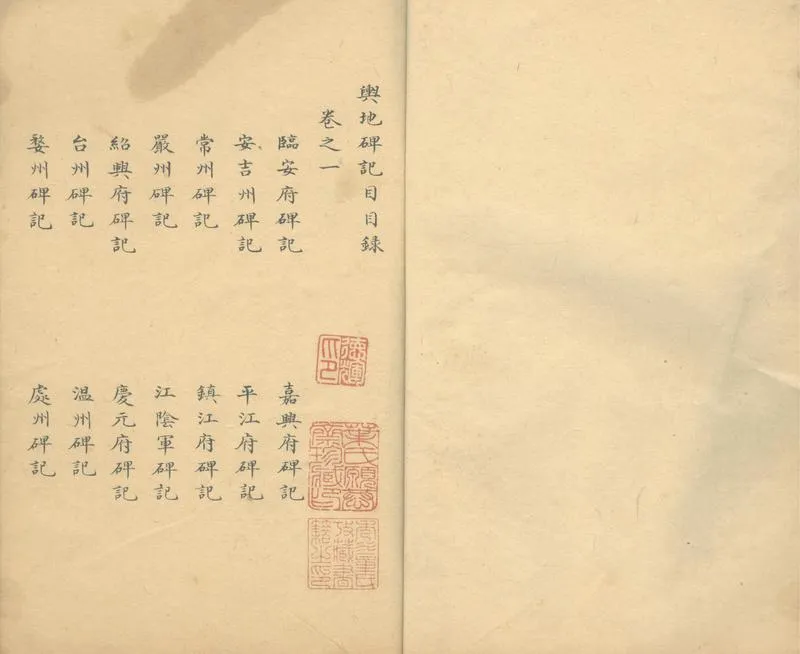 輿地碑記目目録
卷之一
臨安府碑記 嘉興府碑記
安吉州碑記 平江府碑記
常州碑記 鎮江府碑記
嚴州碑記 江陰軍碑記
紹興府碑記 慶元府碑記
台州碑記 温州碑記
婺州碑記 處州碑記